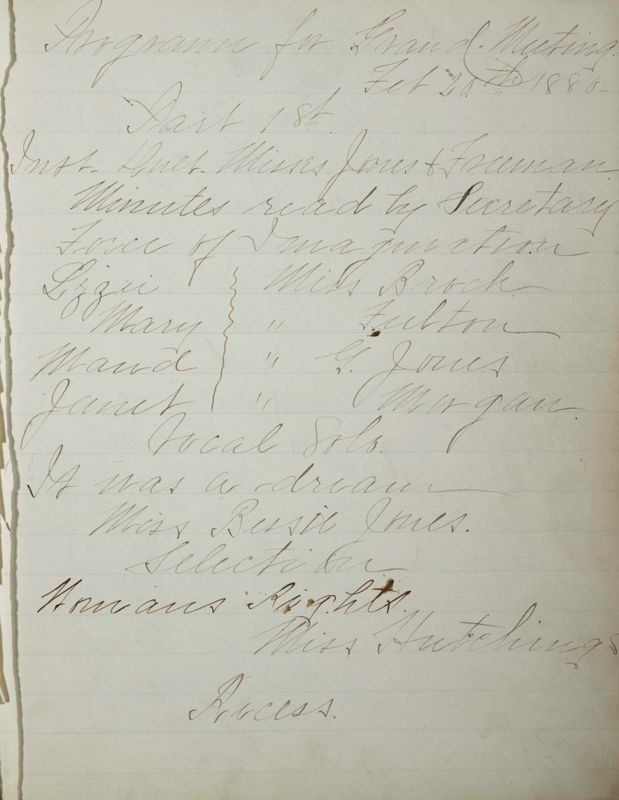 Programme for Grand Meeting.
Feb 20th 1880-
Part 1st.
Inst. Duet. Misses Jones & Freeman
Minutes read by Secretary
Force of Imagination
Lizzie } Miss Brock
Mary } " Fulton
Maud } " G. Jones
Janet } " Morgan.
Vocal Solo.
It was a dream
Miss Bessie Jones.
Selection
Womans Rights.
Miss Hutchings
Recess.